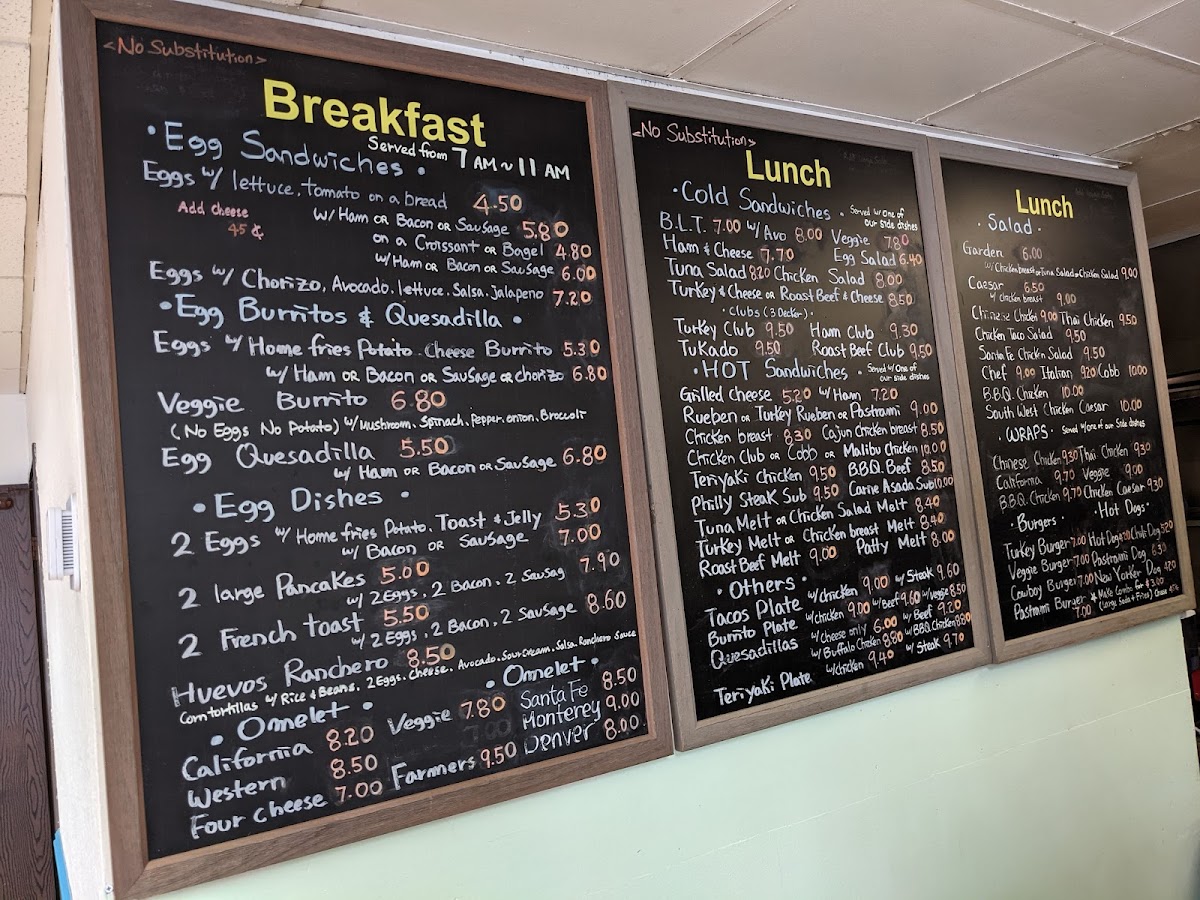 <No Substitution>
Breakfast
Served from 7 AM ~ 11 AM
• Egg Sandwiches •
Eggs w/ lettuce, tomato on a bread 4.50
Add cheese
45 ¢
w/ Ham OR Bacon or Sausage 5.80
on a Croissant OR Bagel 4.80
w/ Ham OR Bacon or Sausage 6.00
Eggs w/ Chorizo, Avocado, lettuce, Salsa, Jalapeno 7.20
• Egg Burritos & Quesadilla •
Eggs w/ Home fries Potato Cheese Burrito 5.30
w/ Ham OR Bacon OR Sausage OR chorizo 6.80
Veggie Burrito 6.80
(No Eggs No Potato) w/ Mushroom, Spinach, pepper, onion, Broccoli
Egg Quesadilla 5.50
w/ Ham OR Bacon OR Sausage 6.80
• Egg Dishes •
2 Eggs w/ Home fries Potato, Toast & Jelly 5.30
w/ Bacon OR Sausage 7.00
2 large Pancakes 5.00
w/ 2 Eggs, 2 Bacon, 2 Sausag 7.90
2 French toast 5.50
w/ 2 Eggs, 2 Bacon, 2 Sausage 8.60
Huevos Ranchero 8.50
Corn tortillas w/ Rice & Beans, 2 Eggs, cheese, Avocado, Sour Cream, Salsa, Ranchero Sauce
• Omelet •
California 8.20
Western 8.50
Four cheese 7.00
Veggie 7.80
Farmers 9.50
• Omelet •
Santa Fe 8.50
Monterey 9.00
Denver 8.00
<No Substitution>
Lunch
• Cold Sandwiches • Served w/ one of our side dishes
B.L.T. 7.00 w/ Avo 8.00 Veggie 7.80
Ham & Cheese 7.70 Egg Salad 6.40
Tuna Salad 8.20 Chicken Salad 8.00
Turkey & Cheese OR Roast Beef & Cheese 8.50
• Clubs (3 Decker) •
Turkey Club 9.50 Ham Club 9.30
TuKado 9.50 Roast Beef Club 9.50
• HOT Sandwiches • Served w/ One of our side dishes
Grilled cheese 5.20 w/ Ham 7.20
Rueben OR Turkey Rueben OR Pastrami 9.00
Chicken breast 8.30 Cajun Chicken breast 8.50
Chicken Club OR Cobb OR Malibu Chicken 10.00
Teriyaki Chicken 9.50 B.B.Q. Beef 8.50
Philly Steak Sub 9.50 Carne Asada Sub 10.00
Tuna Melt OR Chicken Salad Melt 8.40
Turkey Melt OR Chicken breast Melt 8.40
Roast Beef Melt 9.00 Patty Melt 8.00
• Others •
Tacos Plate w/ chicken 9.00 w/ Steak 9.60
Burrito Plate w/ chicken 9.00 w/ Beef 9.60 w/ Veggie 8.50
Quesadillas w/ cheese only 6.00 w/ Beef 9.20
w/ Buffalo Chicken 8.80 w/ BBQ Chicken 8.80
Teriyaki Plate w/ chicken 9.40 w/ Steak 9.70
Lunch
• Salad •
Garden 6.00
w/ Chicken breast or Tuna Salad or Chicken Salad 9.00
Caesar 6.50
w/ chicken breast 9.00
Chinese Chicken 9.00 Thai Chicken 9.50
Chicken Taco Salad 9.50
Santa Fe Chicken Salad 9.50
Chef 9.00 Italian 9.20 Cobb 10.00
B.B.Q. Chicken 10.00
South West Chicken Caesar 10.00
• WRAPS • Served w/ one of our Side dishes
Chinese Chicken 9.30 Thai Chicken 9.30
California 9.70 Veggie 9.00
B.B.Q. Chicken 9.70 Chicken Caesar 9.30
• Burgers • • Hot Dogs •
Turkey Burger 7.00 Hot Dog Chili Dog 5.20
Veggie Burger 7.00 Pastrami Dog
Cowboy Burger 7.00 New Yorker Dog 4.20
Pastrami Burger 7.00
★ Make Combo for $3.00
(Large Soda + Fries) Cheese